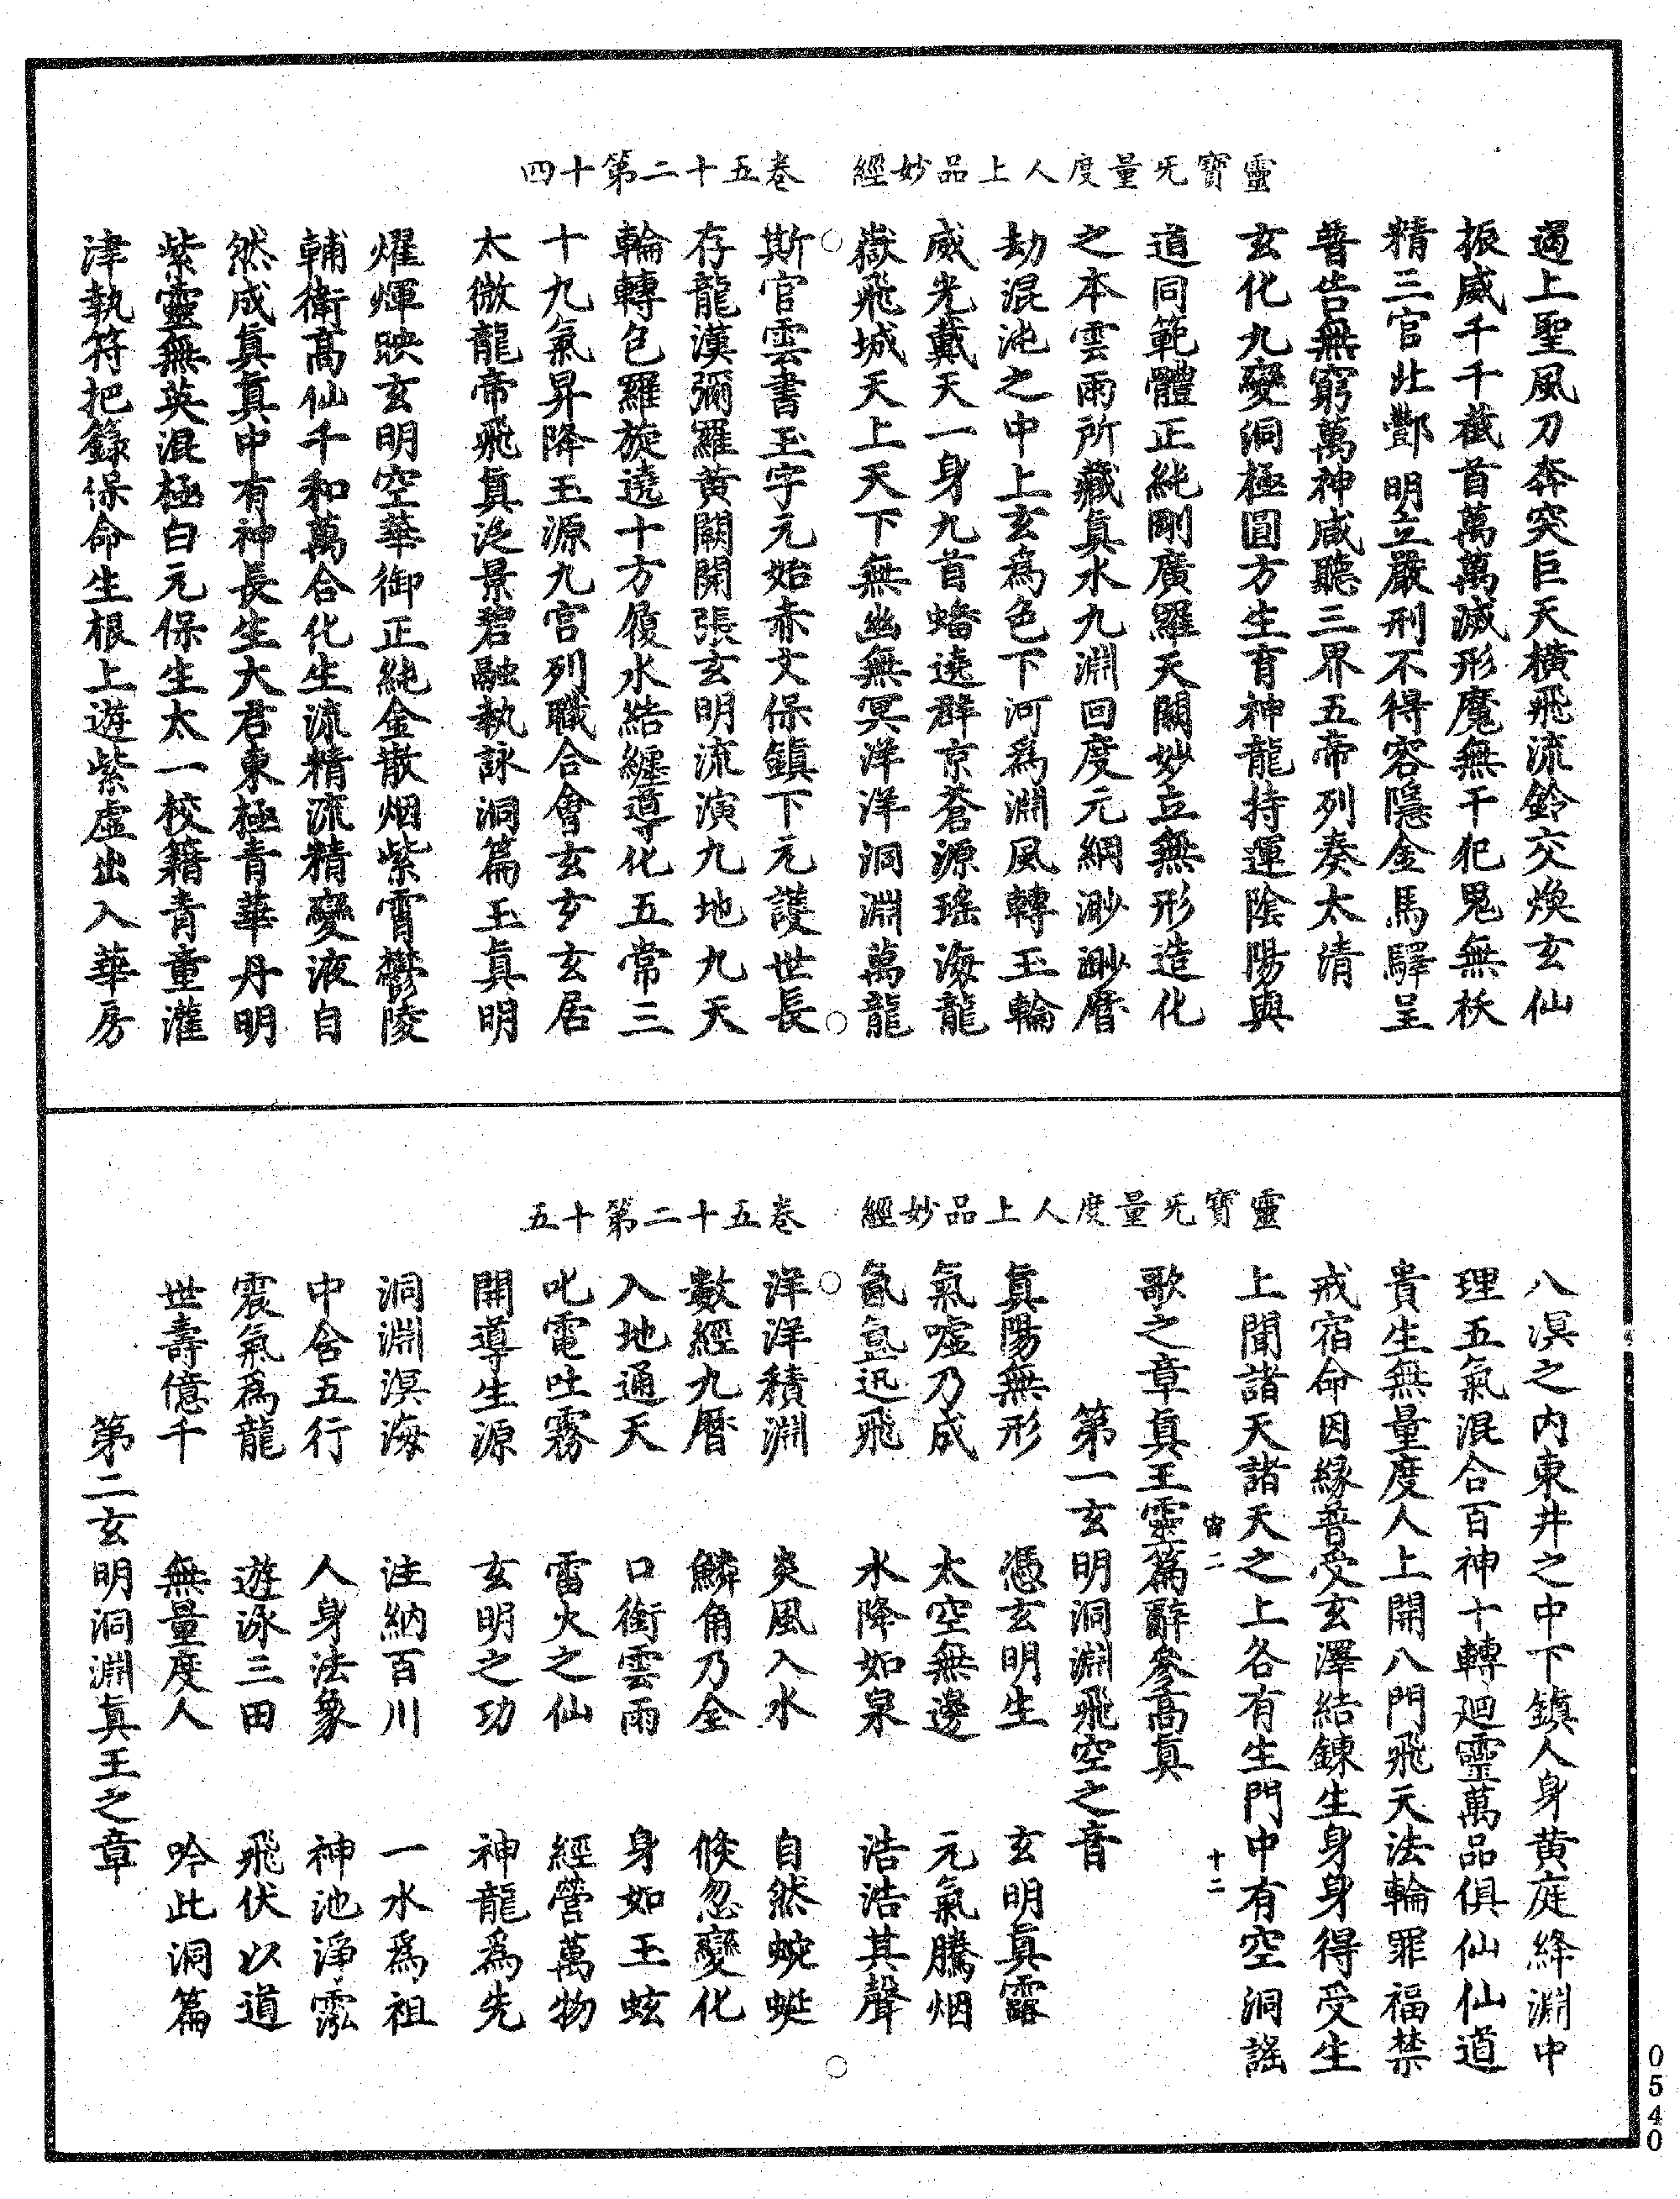 靈寶无量度人上品妙經　卷五十二第十四
遏上聖風刀奔突巨天橫飛流鈴交煥玄仙
振威千千截首萬萬滅形魔無干犯鬼無袄
精三官北酆明立嚴刑不得容隱金馬驛呈
普告無窮萬神咸聽三界五帝列奏太清
玄化九變洞極圓方生育神龍持運陰陽與
道同範體正純剛廣羅天關妙立無形造化
之本雲雨所藏真水九淵回度元綱渺渺曆
劫混沌之中上玄為色下河為淵風轉玉輪
威光戴天一身九首蟠遶群京蒼源瑤海龍
嶽飛城天上天下無幽無冥洋洋洞淵萬龍
斯官雲書玉字元始赤文保鎮下元護世長
存龍漢彌羅黃闕開張玄明流演九地九天
輪轉包羅旋遶十方履水結纏導化五常三
十九氣昇降玉源九宮列職合會玄玄玄居
太微龍帝飛真泛景碧融執詠洞篇玉真明
燿煇映玄明空華御正純金散烟紫霄鬱陵
輔衛高仙千和萬合化生流精流精變液自
然成真真中有神長生大君東極青華丹明
紫靈無英混極白元保生太一校籍青童灌
津執符把籙保命生根上遊紫虛出入華房
靈寶无量度人上品妙經　卷五十二第十五
八溟之內東井之中下鎮人身黃庭絳淵中
理五氣混合百神十轉廻靈萬品俱仙仙道
貴生無量度人上開八門飛天法輪罪福禁
戒宿命因緣普受玄澤結鍊生身身得受生
上聞諸天諸天之上各有生門中有空洞謠
宙二　十二
歌之章真王靈篇辭參高真
第一玄明洞淵飛空之音
真陽無形　憑玄明生　玄明真靈
氣噓乃成　太空無邊　元氣騰烟
氤氳迅飛　水降如泉　浩浩其聲
洋洋積淵　炎風入水　自然蜿蜒
數經九曆　鱗角乃全　倏忽變化
入地通天　口銜雲雨　身如玉蛟
叱電吐霧　雷火之仙　經營萬物
開導生源　玄明之功　神龍為先
洞淵溟海　注納百川　一水為祖
中含五行　人身法象　神池淨
震氣為龍　遊泳三田　飛伏以道
世壽億千　無量度人　吟此洞篇
第二玄明洞淵真王之章
0540